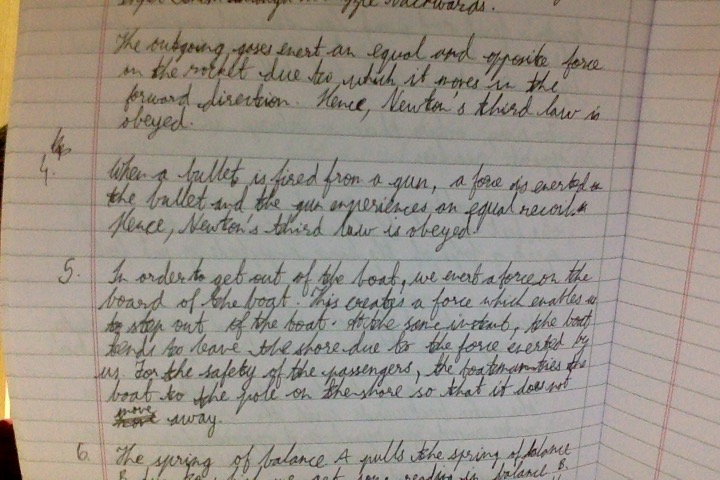 backwards.
The outgoing gases exert an equal and opposite force
on the rocket due to which it moves in the
forward direction. Hence, Newton's third law is
obeyed.
4. When a bullet is fired from a gun, a force is exerted on
the bullet and the gun experiences an equal recoil.
Hence, Newton's third law is obeyed.
5. In order to get out of the boat, we exert a force on the
board of the boat. This creates a force which enables us
to step out of the boat. At the same instant, the boat
tends to leave the shore due to the force exerted by
us. For the safety of the passengers, the boatman ties the
boat to the pole on the shore so that it does not
move away.
6. The spring of balance A pulls the spring of balance
reading in balance B.